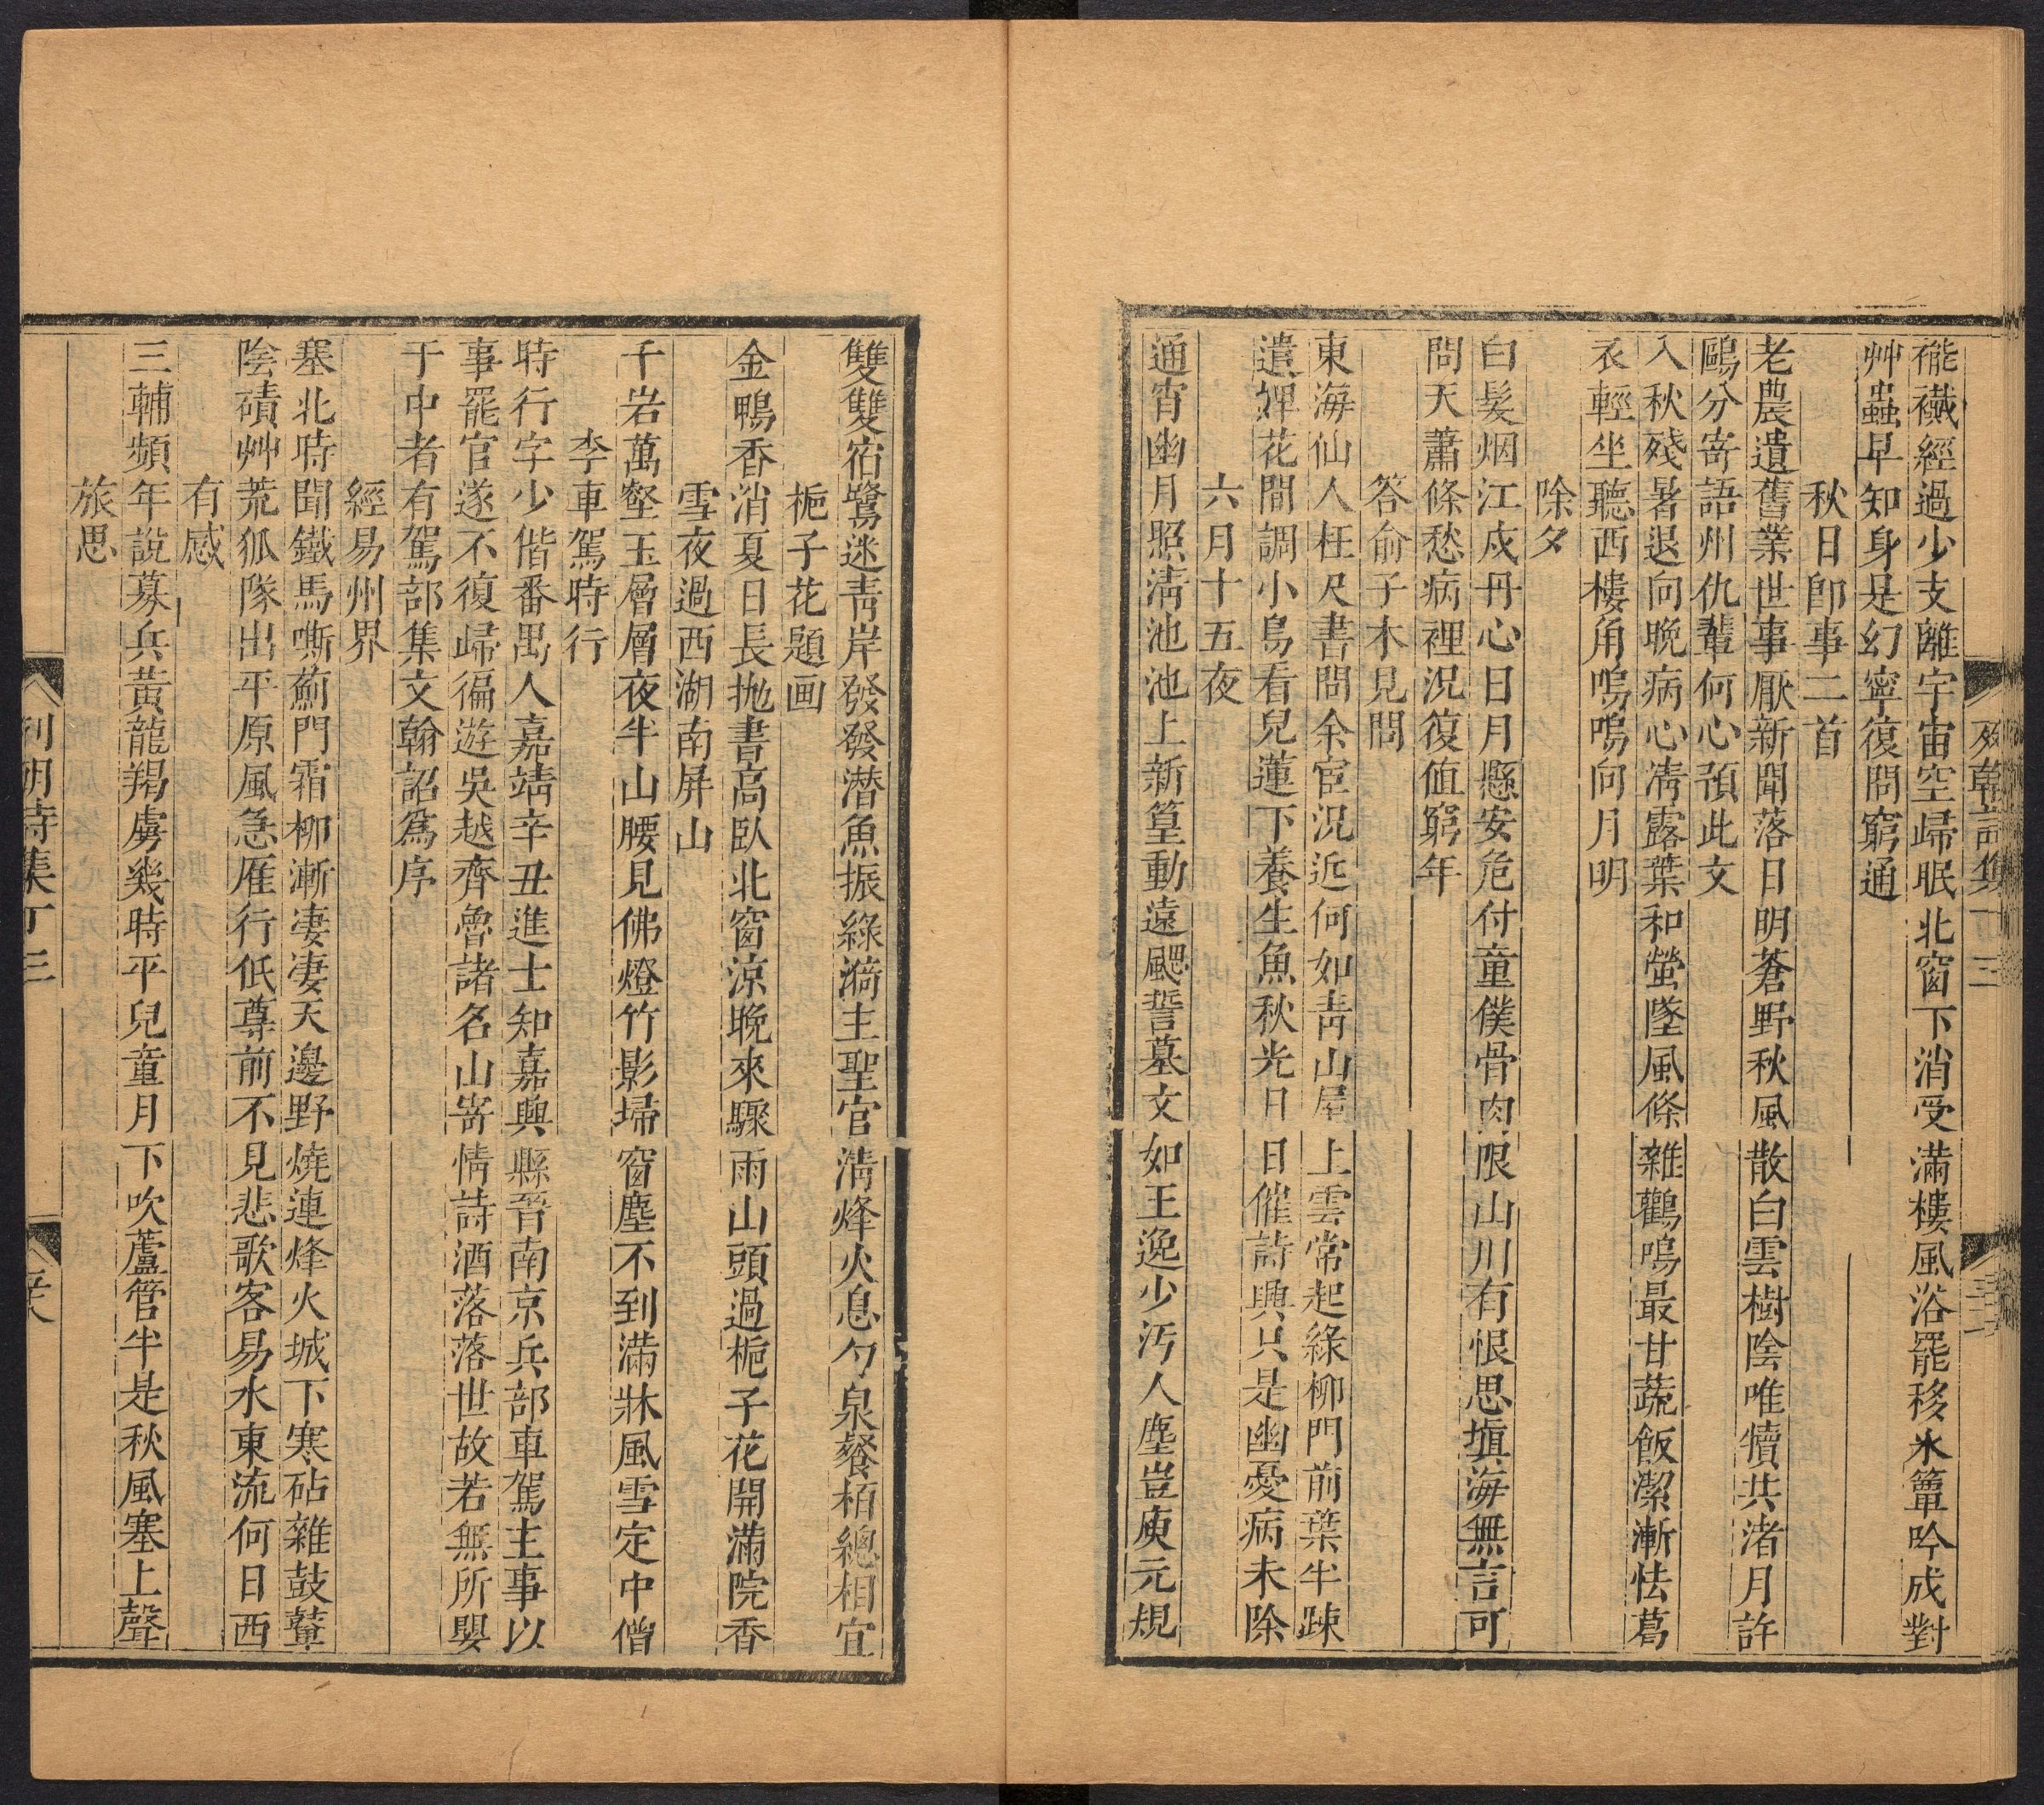 褦襶經過少支離宇宙空歸眠北窗下消受滿樓風浴罷移氷簟吟成對
艸蟲早知身是幻寧復問窮通
秋日卽事二首
老農遺舊業世事厭新聞落日明蒼野秋風散白雲樹陰唯犢共渚月許
鷗分寄語州仇輩何心預此文
入秋殘暑退向晚病心淸露葉和螢墜風條雜鸛鳴最甘蔬飯潔漸怯葛
衣輕坐聽西樓角嗚嗚向月明
除夕
白髮烟江戍丹心日月懸安危付童僕骨肉限山川有恨思塡海無言可
問天蕭條愁病裡況復值窮年
答俞子木見問
東海仙人枉尺書問余宦況近何如靑山屋上雲常起綠柳門前葉半踈
遣婢花間調小鳥看兒蓮下養生魚秋光日日催詩興只是幽憂病未除
六月十五夜
通宵幽月照淸池池上新篁動遠颸誓墓文如王逸少汚人塵豈庾元規
雙雙宿鷺迷靑岸發發潛魚振綠漪主聖官淸烽火息勺泉餐栢總相宜
梔子花題画
金鴨香消夏日長抛書高臥北窗涼晚來驟雨山頭過梔子花開滿院香
雪夜過西湖南屏山
千岩萬壑玉層層夜半山腰見佛燈竹影埽窗塵不到滿牀風雪定中僧
李車駕時行
時行字少偕番禺人嘉靖辛丑進士知嘉興縣晉南京兵部車駕主事以
事罷官遂不復歸徧遊吳越齊魯諸名山寄情詩酒落落世故若無所嬰
于中者有駕部集文翰詔爲序
經易州界
塞北時聞鐵馬嘶薊門霜柳漸淒淒天邊野燒連烽火城下寒砧雜鼓鼙
陰磧艸荒狐隊出平原風急雁行低尊前不見悲歌客易水東流何日西
有感
三輔頻年說募兵黃龍羯虜幾時平兒童月下吹蘆管半是秋風塞上聲
旅思
列朝詩集丁三